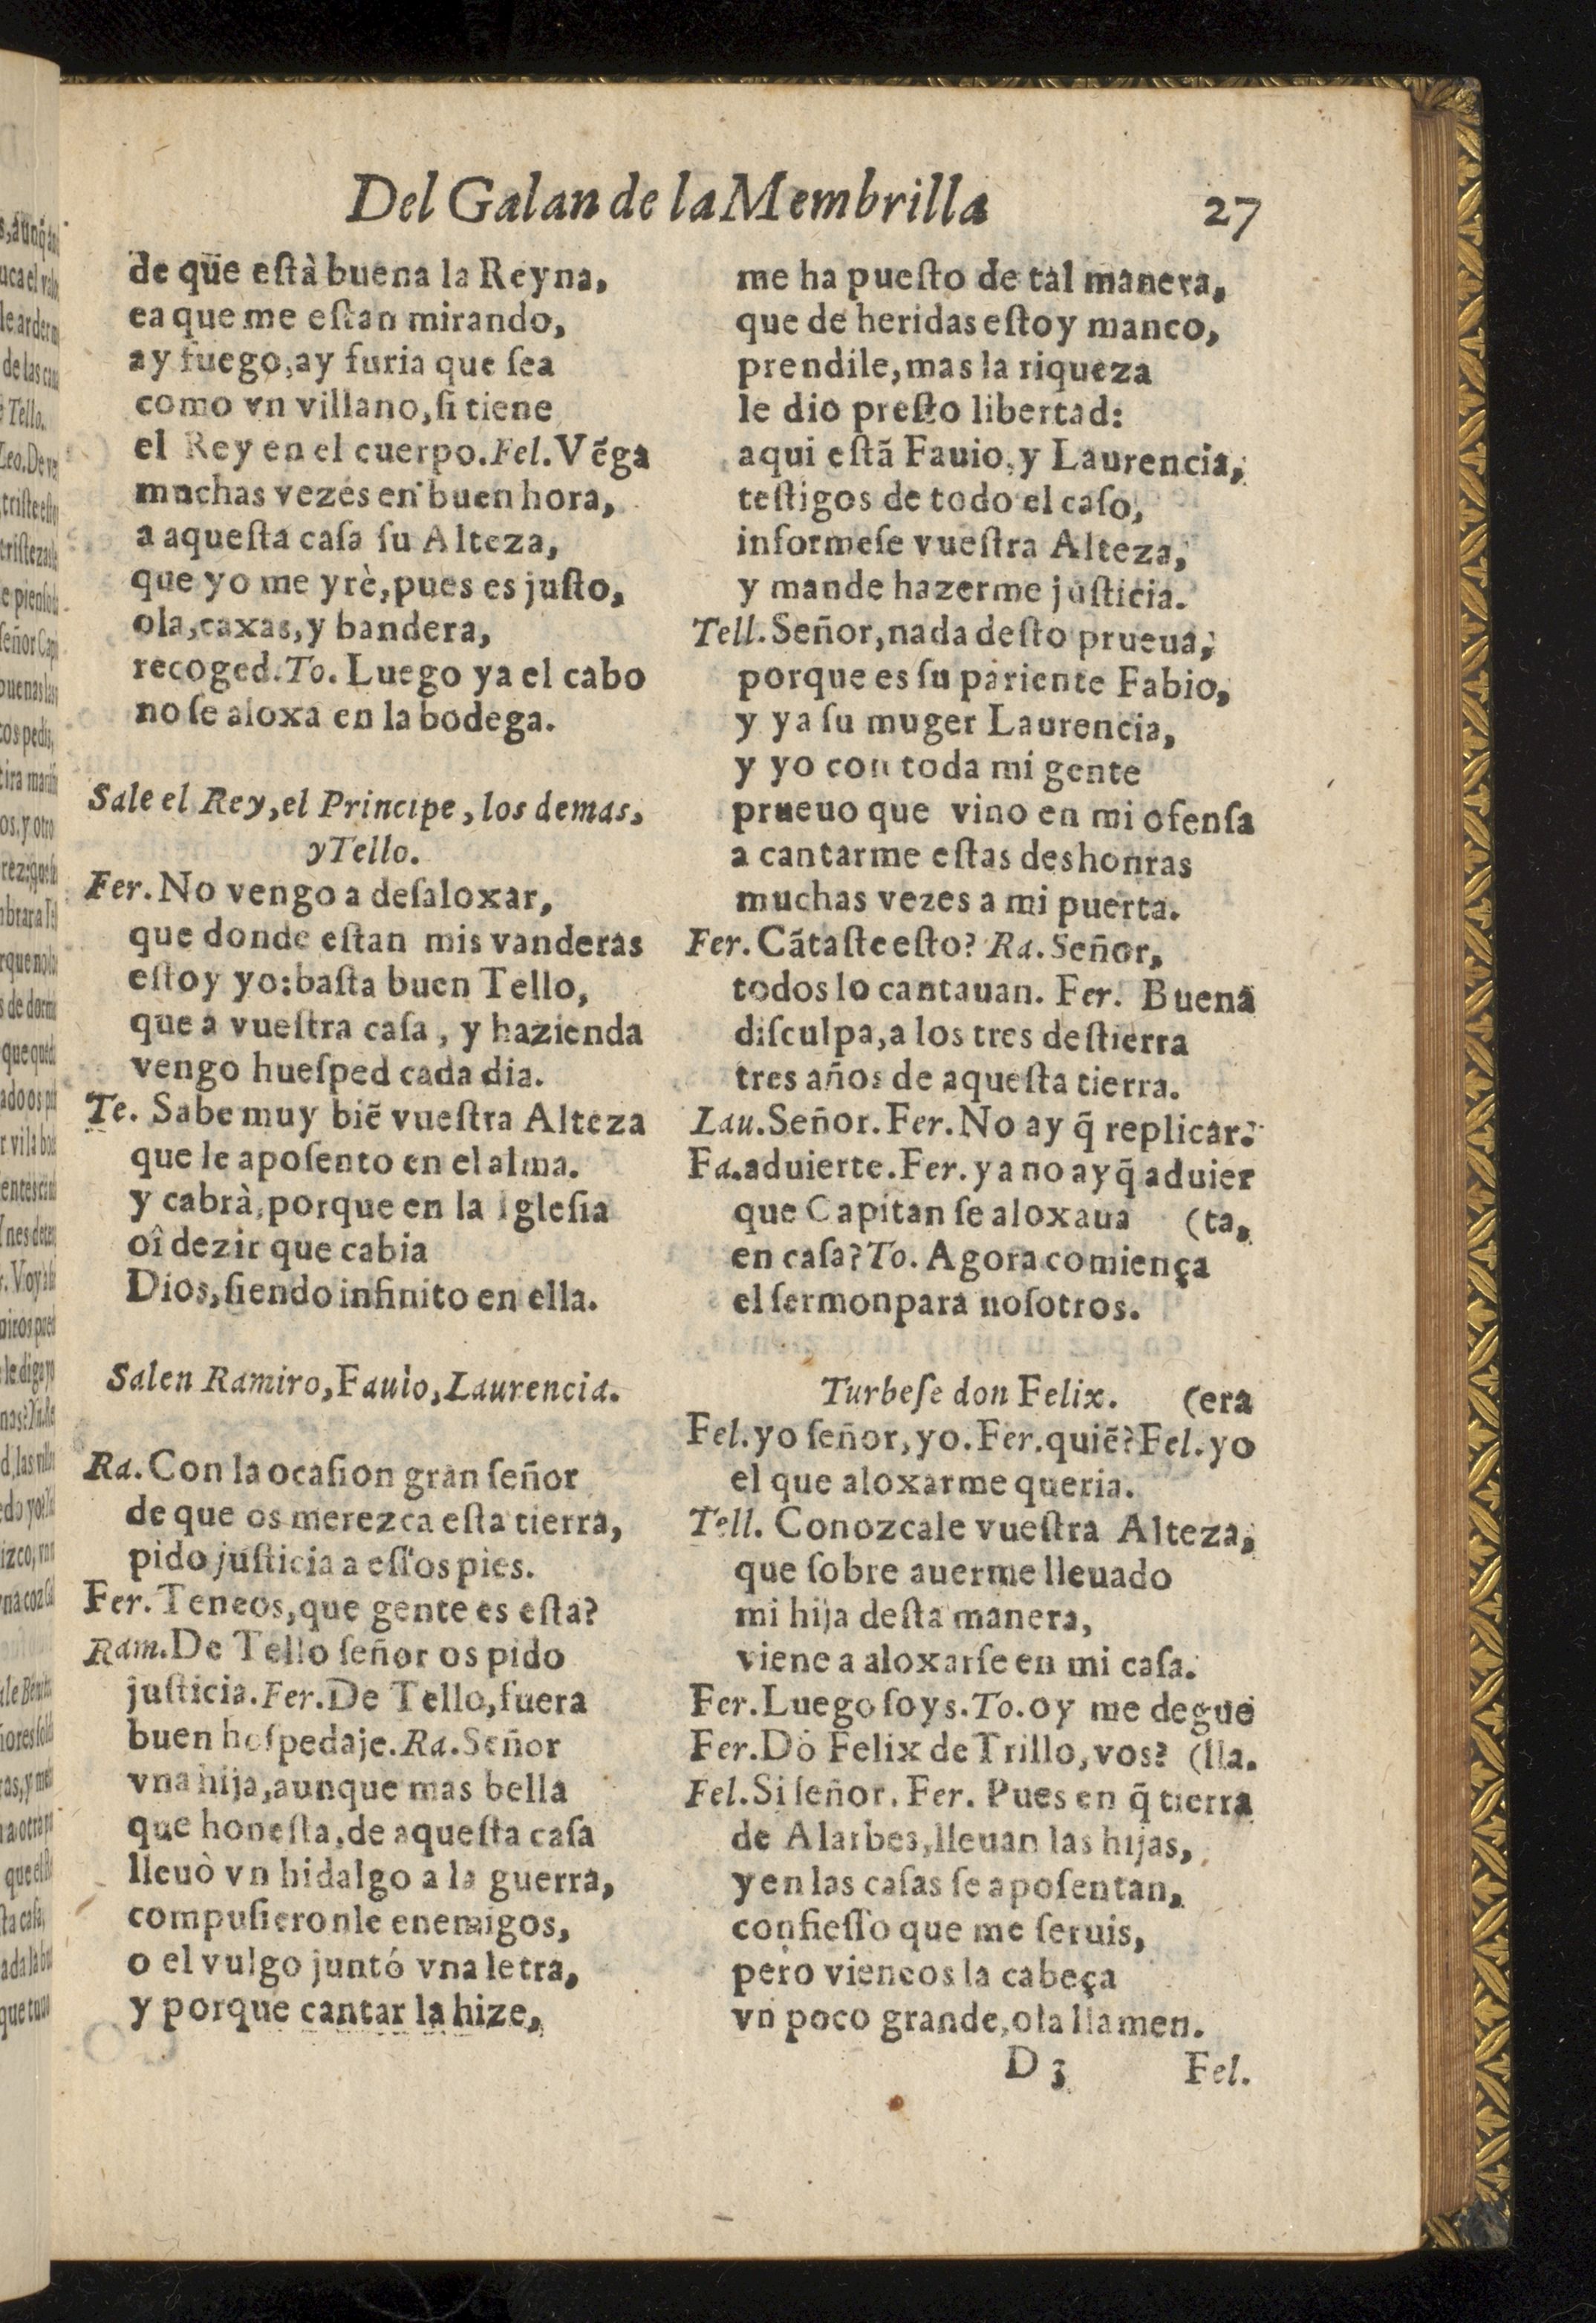 Del Galan de la Membrilla 27
de que estâ buena la Reyna,
ea que me estan mirando,
ay fuego, ay furia que sea
como vn villano, si tiene
el Rey en el cuerpo. Fel. Vẽga
muchas vezes en buen hora,
a aquesta casa su Alteza,
que yo me yrè, pues es justo,
ola, caxas, y bandera,
recoged. To. Luego ya el cabo
no se aloxa en la bodega.
Sale el Rey, el Principe, los demas,
y Tello.
Fer. No vengo a desaloxar,
que donde estan mis vanderas
estoy yo: basta buen Tello,
que a vuestra casa, y hazienda
vengo huesped cada dia.
Te. Sabe muy biẽ vuestra Alteza
que le aposento en el alma.
y cabrà, porque en la Iglesia
oî dezir que cabia
Dios, siendo infinito en ella.
Salen Ramiro, Fauio, Laurencia.
Ra. Con la ocasion gran señor
de que os merezca esta tierra,
pido justicia a essos pies.
Fer. Teneos, que gente es esta?
Ram. De Tello señor os pido
justicia. Fer. De Tello, fuera
buen hospedaje. Ra. Señor
vna hija, aunque mas bella
que honesta, de aquesta casa
lleuò vn hidalgo a la guerra,
compusieronle enemigos,
o el vulgo juntó vna letra,
y porque cantar la hize,
me ha puesto de tal manera,
que de heridas estoy manco,
prendile, mas la riqueza
le dio presto libertad:
aqui estã Fauio, y Laurencia,
testigos de todo el caso,
informese vuestra Alteza,
y mande hazerme justicia.
Tell. Señor, nada desto prueua,
porque es su pariente Fabio,
y ya su muger Laurencia,
y yo con toda mi gente
prueuo que vino en mi ofensa
a cantarme estas deshonras
muchas vezes a mi puerta.
Fer. Cãtaste esto? Ra. Señor,
todos lo cantauan. Fer. Buena
disculpa, a los tres destierra
tres años de aquesta tierra.
Lau. Señor. Fer. No ay q̃ replicar.
Fa. aduierte. Fer. ya no ay q̃ aduier
que Capitan se aloxaua (ta,
en casa? To. Agora comiença
el sermon para nosotros.
Turbese don Felix. (era
Fel. yo señor, yo. Fer. quiẽ? Fel. yo
el que aloxarme queria.
Tell. Conozcale vuestra Alteza,
que sobre auerme lleuado
mi hija desta manera,
viene a aloxarse en mi casa.
Fer. Luego soys. To. oy me degue
Fer. Dõ Felix de Trillo, vos? (lla.
Fel. Si señor. Fer. Pues en q̃ tierra
de Alarbes, lleuan las hijas,
y en las casas se aposentan,
confiesso que me seruis,
pero vieneos la cabeça
vn poco grande, ola llamen.
D 3 Fel.